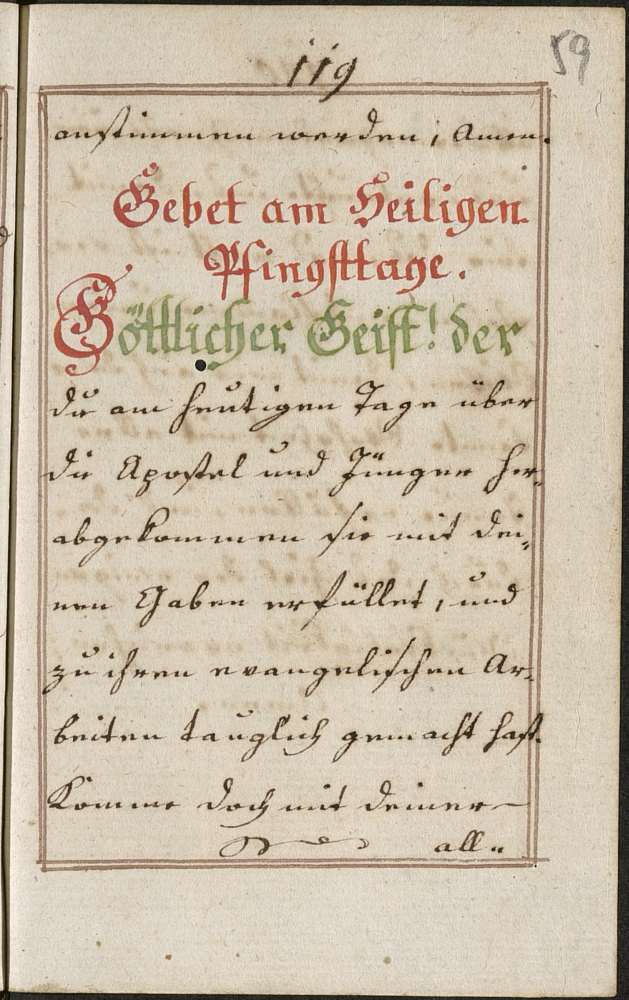 119
59
anstimmen werden, Amen.
Gebet am Heiligen
Pfingsttage.
Göttlicher Geist! der
du am heutigen Tage über
die Apostel und Jünger her,,
abgekommen sie mit dei,,
nen Gaben erfüllet, und
zu ihren evangelischen Ar,,
beiten tauglich gemacht hast.
Komme doch mit deiner
all,,